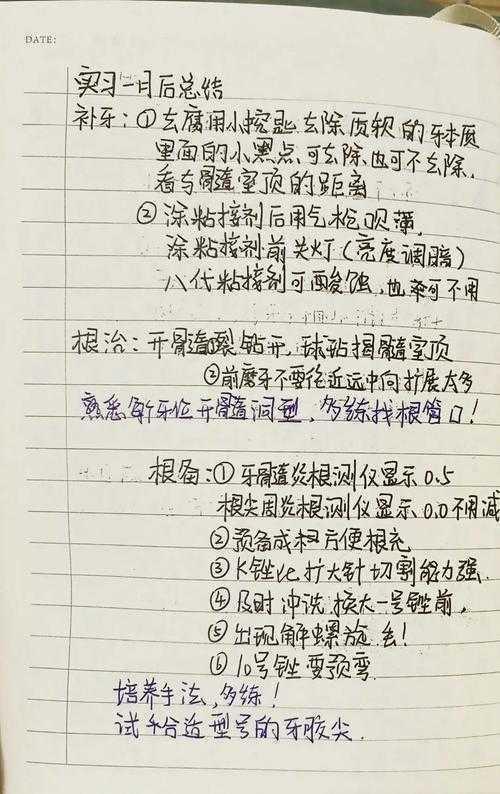 DATE:
实习一月后总结
补牙：①去腐用小挖匙去除质软的牙本质
里面的小黑点可去除也可不去除，
看与髓室顶的距离
②涂粘接剂后用气枪吹薄，
涂粘接剂前关灯（亮度调暗）
八代粘接剂可酸蚀，也可不用
根治：开髓裂钻开，球钻揭髓室顶
②前磨牙不要往近远中向扩展太多
熟悉每个牙位开髓洞型，多练找根管口！
根备：①牙髓炎根测仪显示0.5
根尖周炎根测仪显示0.0不用减
②预备成 方便根充
③K锉vc扩大针切割能力强
④及时冲洗换大一号锉前，
⑤出现解螺旋丢！
⑥10号锉要预弯
培养手法，多练！
试 合适型号的牙胶尖